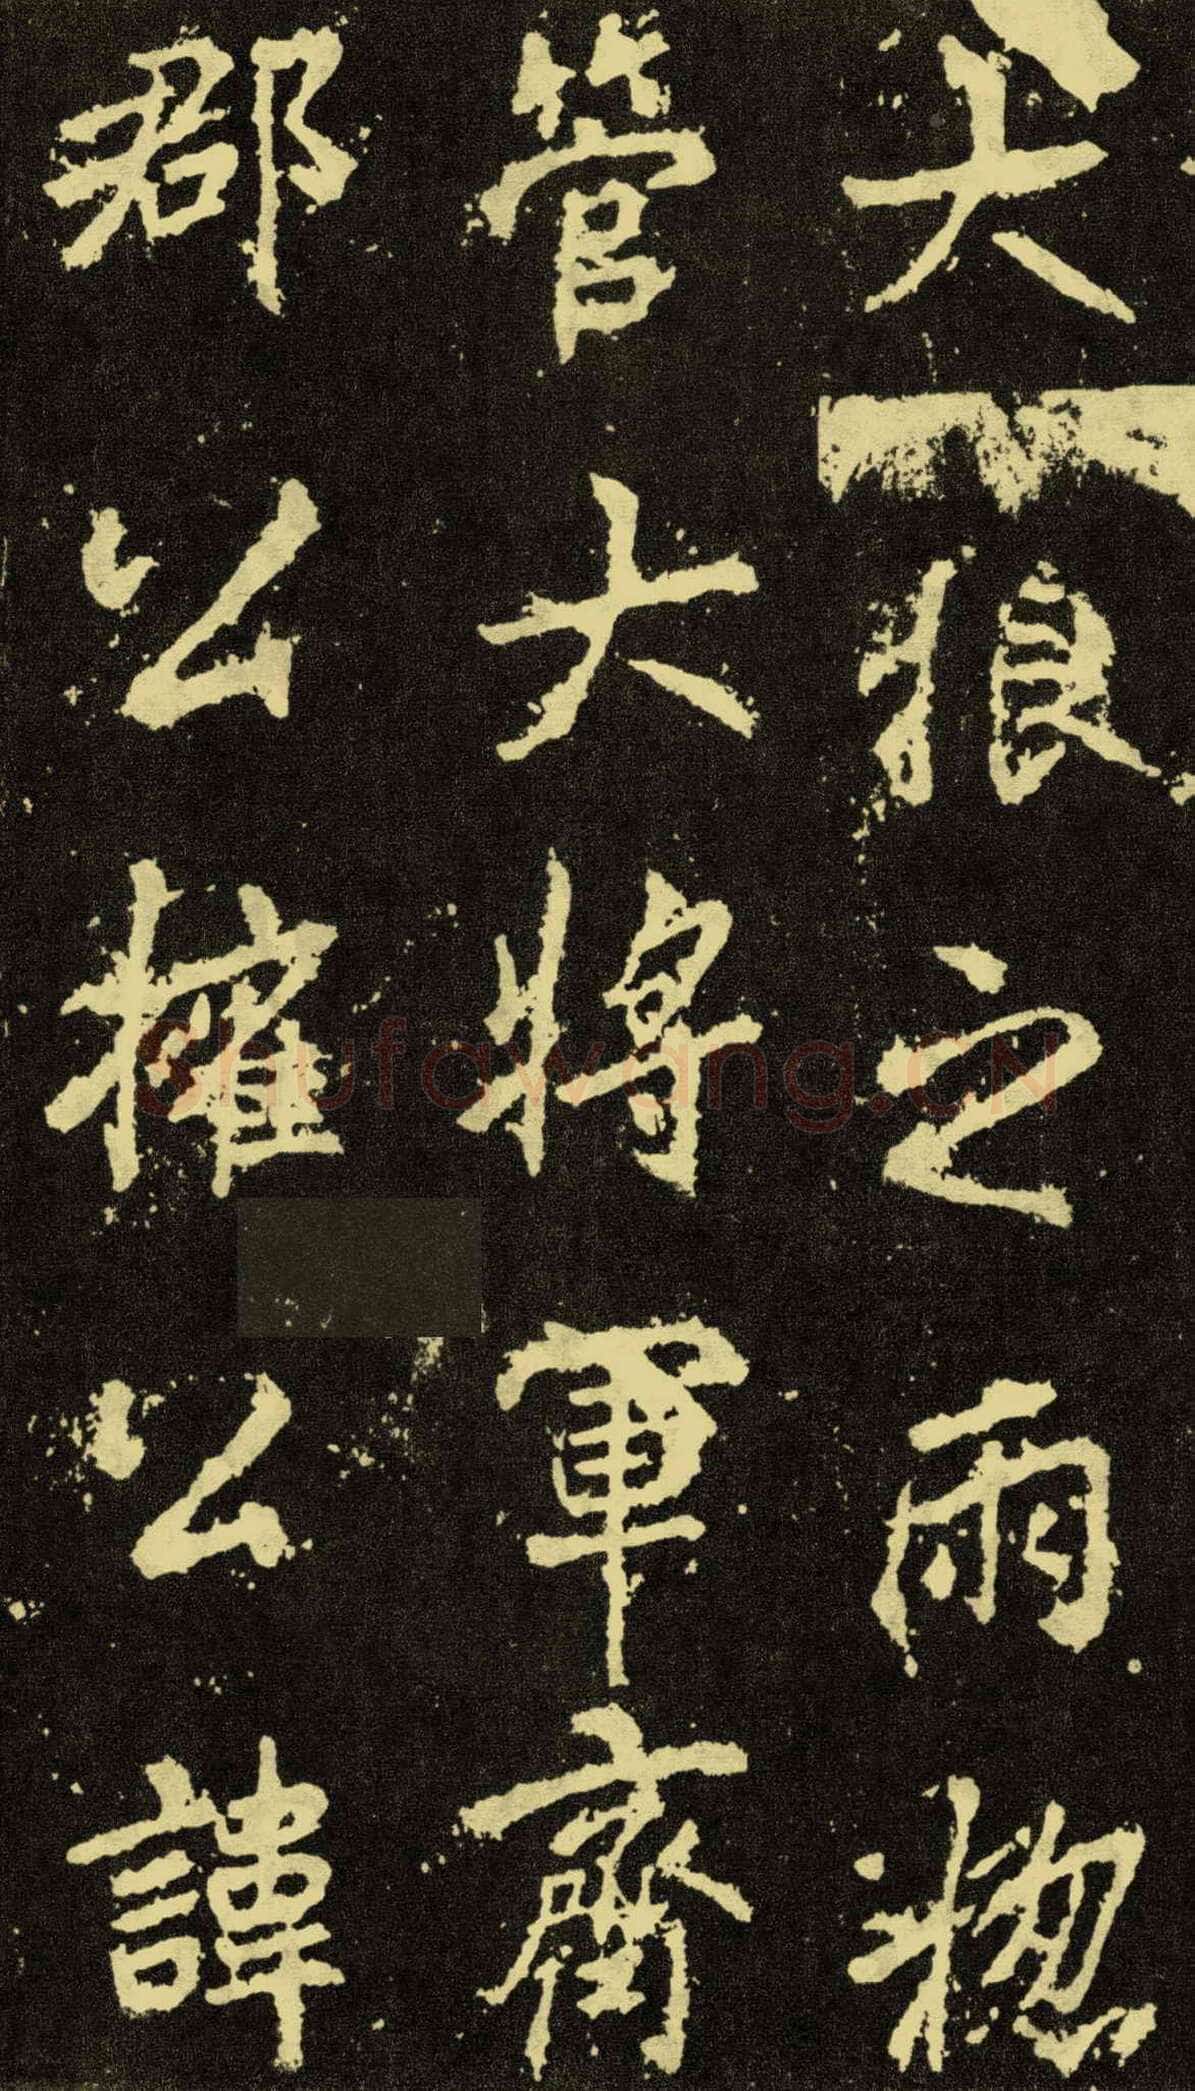 大狼之雨惣
管大將軍齊
郡公擁公諱
Shufawang.CN